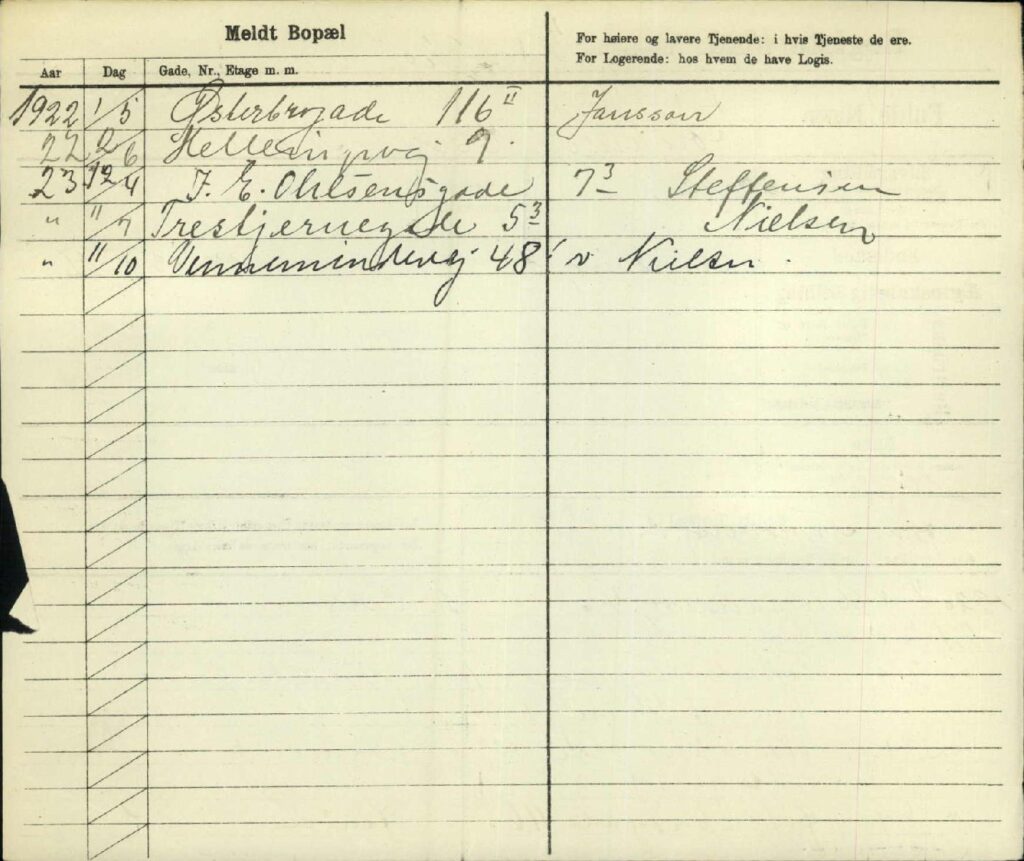 Meldt Bopæl
For høiere og lavere Tjenende: i hvis Tjeneste de ere.
For Logerende: hos hvem de have Logis.
Aar Dag Gade, Nr., Etage m. m.
1922 1/5 Østerbrogade 116 II Jansson
22 2/6 9.
23 12/4 J. E. Ohlsensgade 7 3 Steffensen
" "/7 Trestjernegade 5 3 Nielsen
" "/10 Vennemindevej 48 v Nielsen